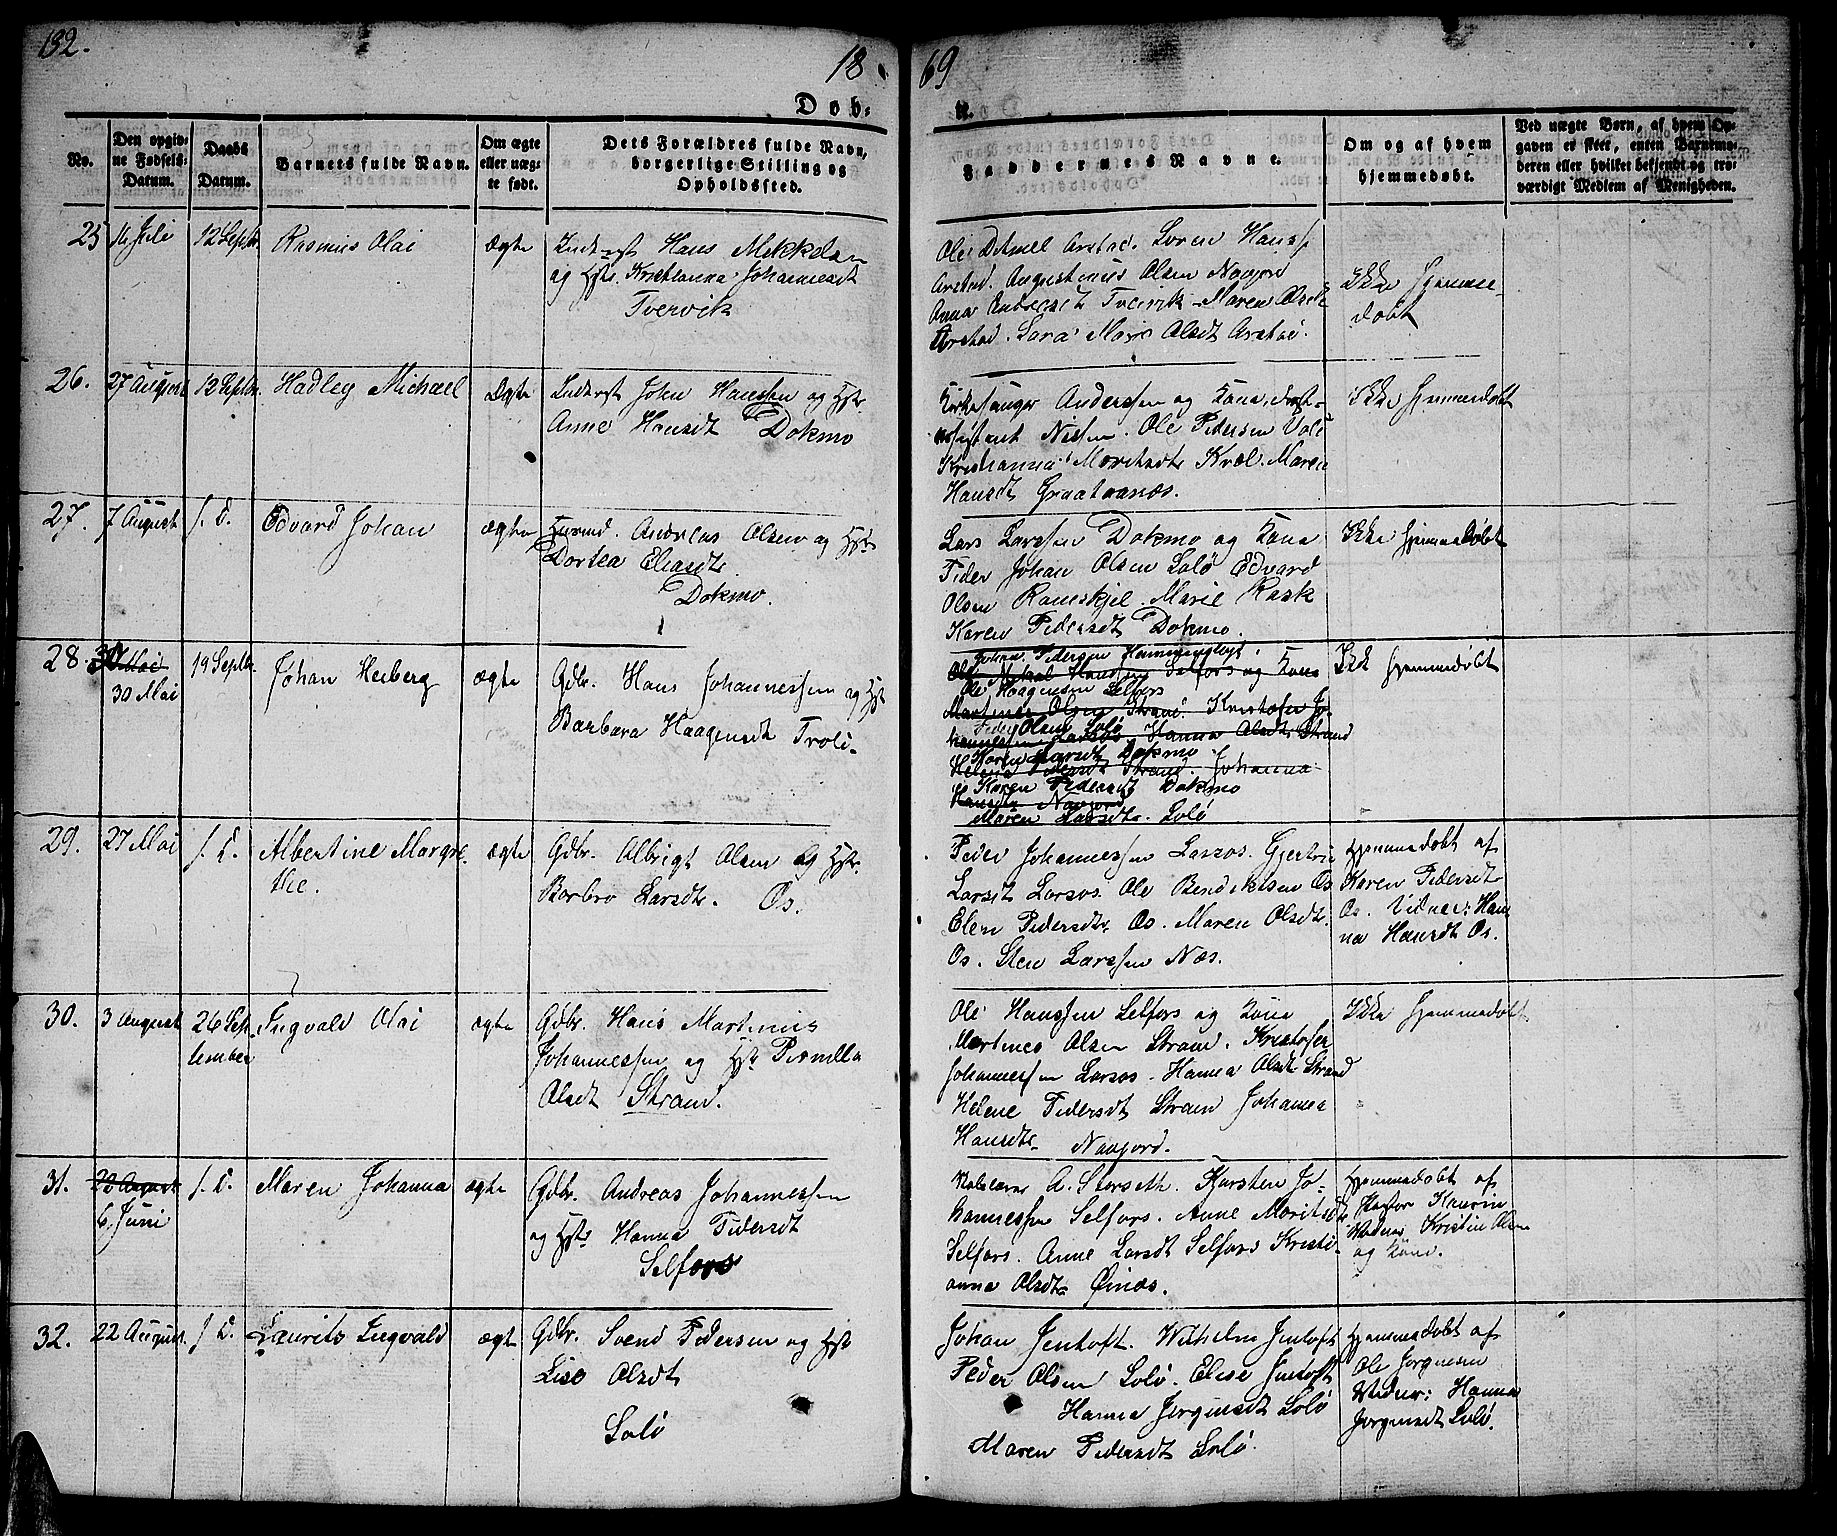 132.
18
69
Dob-
te.
No.
Den opgiv-
ne Fødsels-
Datum.
Daabs
Datum.
Barnets fulde Navn.
Om ægte
eller uæg-
te født.
Dets Forældres fulde Navn,
borgerlige Stilling og
Opholdssted.
Faddernes Navne.
Om og af hvem
hjemmedøbt.
Ved uægte Børn, af hvem Op-
gaven er skeet, enten Barnemo-
deren eller hvilket bekjendt og tro-
værdigt Medlem af Menigheden.
25 14 Juli 12 Septbr. Rasmus Olai ægte
Inderst Hans Mekkelsen
og Hstr. Kristianna Johannesdt
Tvervik
Ole Detmel Arstad. Søren Hanss.
Arstad. Augustinus Olsen Navjord
Anna Andersdt Tvervik. Maren Olsdt
Arstad. Sara Marie Olsdt Arstad.
Ikke hjemme-
døbt
26. 27 August 12 Septbr. Hadley Michael ægte
Inderst John Hanssen og Hstr.
Anne Hansdt Dokmo
Kirkesanger Anderssen og Kone,
Nissen. Ole Pedersen
Kristianna Moritsdt Kvæl. Maren
Hansdt Graataanæs.
Ikke hjemmedøbt
27. 7 August s. D. Edvard Johan ægte
Husmd. Andreas Olsen og Hstr
Dortea Eliasdt
Dokmo.
Lars Larssen Dokmo og Kone
Peder Johan Olsen Solø Edvard
Olsen Ramskjel. Marie Rask
Karen Pedersdt Dokmo.
Ikke hjemmedøbt
28. 30 Mai
30 Mai
19 Septbr. Johan Heiberg ægte
Gdbr. Hans Johannessen og Hstr
Barbara Haagensdt Troli-
Johan Pedersen
Ole Hanssen Selfors og Kone
Ole Haagensen Selfors
Martines Olsen Strand. Kristofer Jo-
Peder Olsen Solø
hannessen Larsos Hanna Olsdt Strand
Karen Larsdt Dokmo
Helene Pedersdt Strand. Johanna
Karen Pedersdt Dokmo
Hansdt Navjord
Maren Larsdt. Solø
Ikke hjemmedøbt
29. 27 Mai s. D. Albertine Margre-
the.
ægte
Gdbr. Albrigt Olsen og Hstr.
Barbro Larsdt. Os.
Peder Johannessen Larsos. Gjertrie
Larsdt Larsos. Ole Bendiktsen Os
Elen Pedersdt. Os. Maren Olsdt.
Os. Sten Larssen Næs.
Hjemmedøbt af
Karen Pedersdt
Os. Vidner: Han
na Hansdt Os.
30. 3 August 26 Sep-
tember
Ingvald Olai ægte
Gdbr. Hans Martinus
Johannessen og Hstr Pernilla
Olsdt Strand.
Ole Hanssen Selfors og Kone
Martines Olsen Strand. Kristofer
Johannessen Larsos. Hanna Olsdt Strand
Helene Pedersdt Strand Johanna
Hansdt. Navjord.
Ikke hjemmedøbt
31. 20 August
6. Juni
s. D. Maren Johanna ægte
Gdbr. Andreas Johannessen
og Hstr Hanna Pedersdt
Selfors
A. Storseth. Karsten Jo-
hannessen Selfors. Anne Moritsdt
Selfors. Anne Larsdt Selfors Kristi-
anna Olsdt Øinæs.
Hjemmedøbt af
Pastor Kaurin
Vidner Kristin Olsen
og Kone.
32. 22 August. s. D. Laurits Ingvald ægte
Gdbr. Svend Pedersen og Hstr
Lise Olsdt
Solø
Johan Jentoft. Wilhelm Jentoft
Peder Olsen Solø. Elise Jentoft
Hanna Jørgensdt Solø
Maren Pedersdt Solø.
Hjemmedøbt af
Ole Jørgensen
Vidner: Hanna
Jørgensdt Solø.